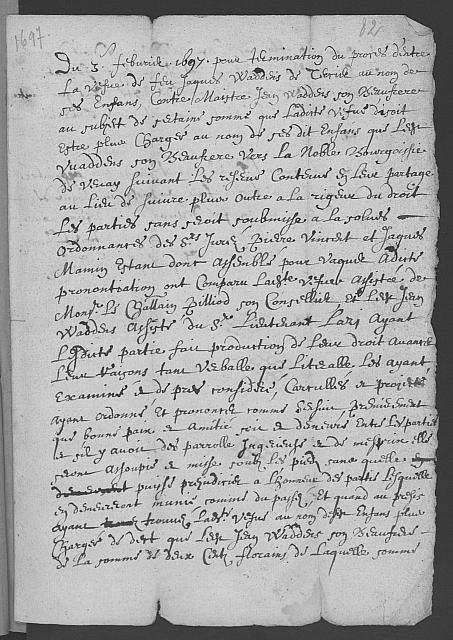 1697.
82
Du 3. feburie 1697 pour termination du proces dentre
La vefve de feu Jaques Wadders de au nom de
ses Enfans, Contre Maistre Jean Wadders son Beaufrere
au subjet de certaine somme que Ladite vefve disoit
Estre plus Chargee au nom de ses dit Enfans que Ledit
Wadders son Beaufrere vers La Noble Bourgoisie
de Vevay suivant Les reserves Contenus en Leur partage
au Lieu de suivre plus outre a la rigeur du droit
Les parties sans soit soubmise a la
ordonnances des Srs Jurez Pierre Vincent et Jaques
Mamin Estant dont assembles pour vaquer a dite
prononciation ont Comparu Ladite vefve assistee de
Monsr Le Chastlain Billiod son Conseiller Et Ledit Jean
Wadders assiste du Sr Lieutenant Lari ayant
Lesdits partie fait production de Leur droit avance
Leur raisons tant verballe que Literalle Les ayant
Examines & de pres considere, Carcullee & projette
ayant ordonne et prononce comme sensuit, premierement
que bonne paix & amitie soit & demeure Entre Les parties
& sil y avoit des parrolle Ingerieuse & de mespris elle
seront assoupie & mise soubz Les pied sans quelle
puisse prejudicier a Lhonneur des partis Lesquelle
en demeureront munis comme du passe, Et quand au
ayant trouvez Ladite vefve au nom desdit Enfans plus
Chargee de debt que Ledit Jean Wadders son Beaufrere
de la somme de deux Cents florains de Laquelle somme